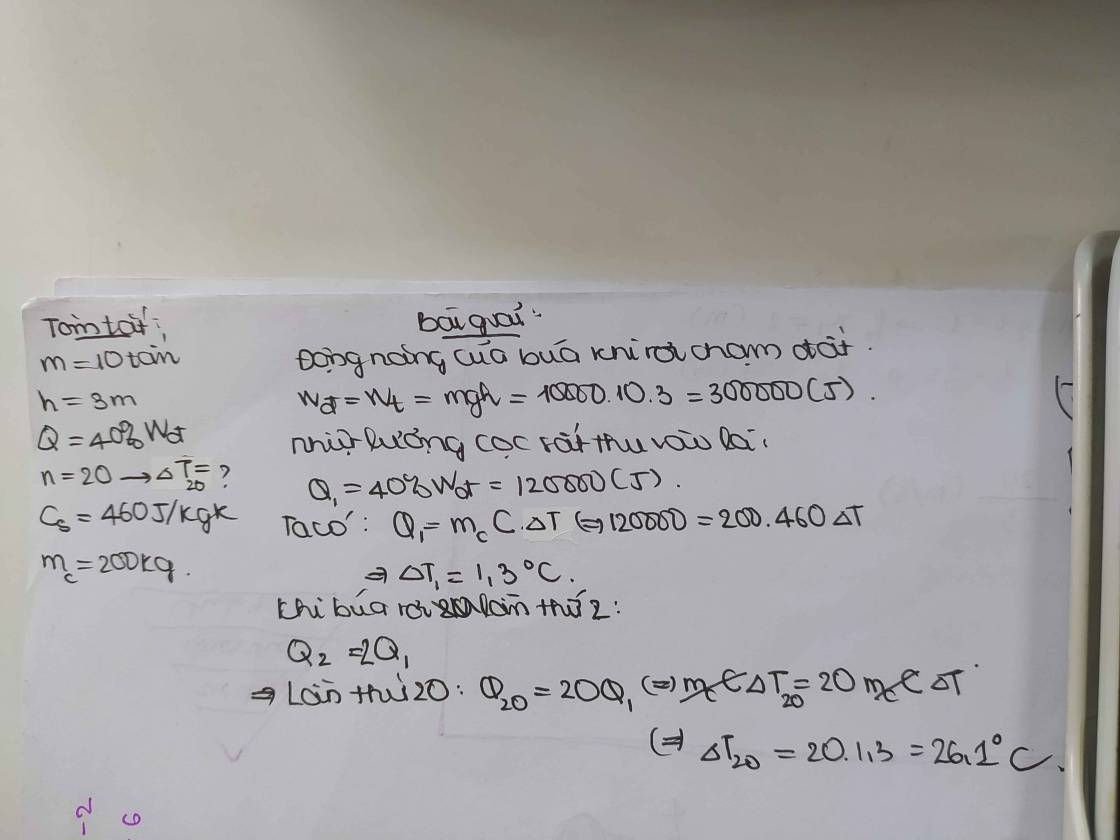 Tóm tắt:
m = 10 tấn
h = 3m
Q = 40% Wđ
n = 20 → ΔT₂₀ = ?
Cₛ = 460 J/kgK
m꜀ = 200 kg.
Bài giải:
Động năng của búa khi rơi chạm đất.
Wđ = Wt = mgh = 10000.10.3 = 300000 (J).
Nhiệt lượng cọc sắt thu vào là:
Q₁ = 40% Wđ = 120000 (J).
Ta có: Q₁ = m꜀ C.ΔT (=) 120000 = 200.460 ΔT
⇒ ΔT₁ = 1,3°C.
Khi búa rơi lần thứ 2:
Q₂ = 2Q₁
⇒ Lần thứ 20: Q₂₀ = 20Q₁ (=) m꜀CΔT₂₀ = 20 m꜀CΔT
(=) ΔT₂₀ = 20.1,3 = 26,1°C.
2
6